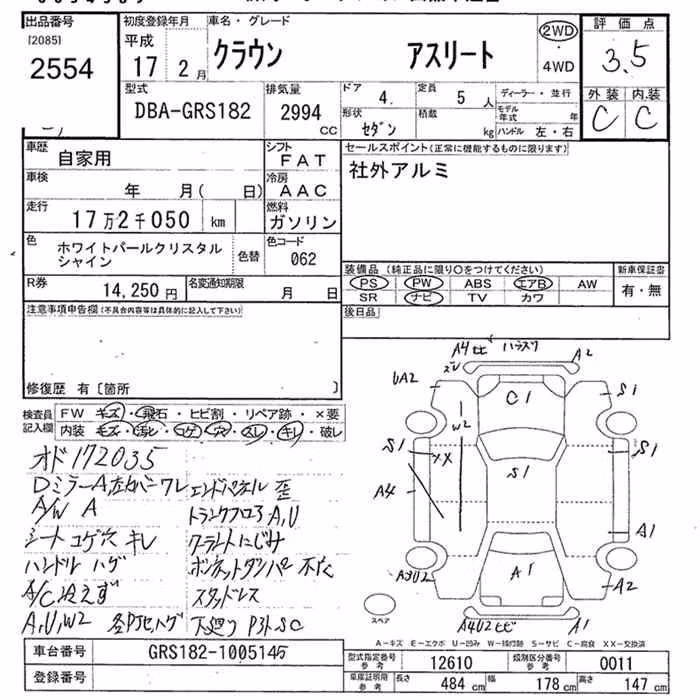 出品番号
[2085]
2554
初度登録年月
平成
17 2 月
車名・グレード
クラウン アスリート
2WD
4WD
評価点
3.5
外装 内装
C C
型式
DBA-GRS182
排気量
2994 CC
ドア
4.
定員
5 人
形状
セダン
積載
kg
ディーラー・並行
モデル年式 年
ハンドル 左・右
車歴
自家用
シフト
FAT
車検
年 月( 日)
冷房
AAC
走行
17万2千050 km
燃料
ガソリン
色
ホワイトパールクリスタル
シャイン
色替
色コード
062
R券
14,250 円
名変通知期限
月 日
セールスポイント(正常に機能するものに限ります)
社外アルミ
装備品(純正品に限り〇をつけてください)
PS PW ABS エアB AW
SR ナビ TV カワ
新車保証書
有・無
後日品
注意事項申告欄(不具合内容等は具体的に記入して下さい)
修復歴 有〔箇所 〕
検査員
記入欄
FW キズ・飛石・ヒビ割・リペア跡・×要
内装 キズ・汚れ・コゲ・穴・スレ・キレ・破レ
オド172035
DミラーA,左右バーワレ
A/W A
シート コゲ穴 キレ
ハンドル ハゲ
A/C冷えず
A,U,W2
エンドパネル 歪
トランクフロアA,U
クーラントにじみ
ボンネットダンパー不良
スタッドレス
下廻り P3ト SC
A4ヒビ
A2
UA2
C1
S1
W2
S1
S1
XX
S1
A4
A1
A1
A2
A4U2ヒビ
A1
スペア
A-キズ E-エクボ U-凹み W-補修跡 S-サビ C-腐食 XX-交換済
車台番号
GRS182-1005145
登録番号
型式指定番号 参考
12610
類別区分番号 参考
0011
車庫証明用 参考
長さ 484 cm
幅 178 cm
高さ 147 cm